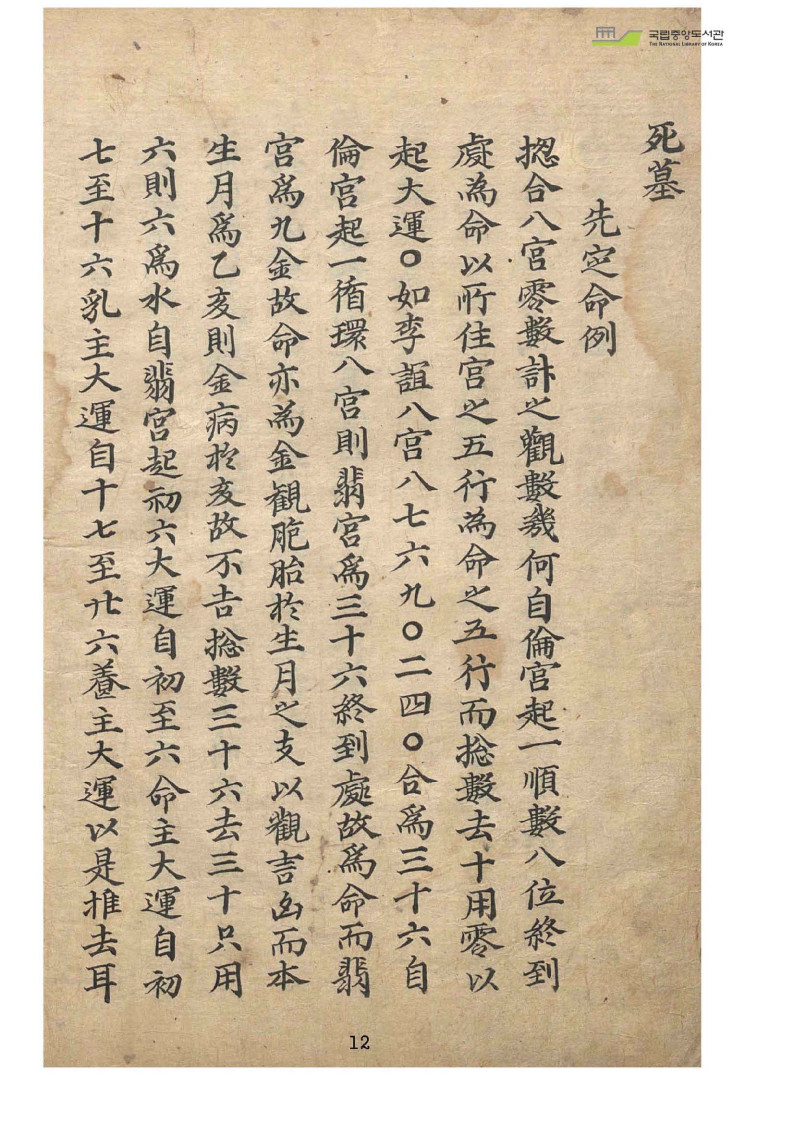 국립중앙도서관
THE NATIONAL LIBRARY OF KOREA
死墓
先定命例
揔合八宮零數計之觀數幾何自倫宮起一順數八位終到
處為命以所住宮之五行為命之五行而揔數去十用零以
起大運○如李誼八宮八七六九○二四○合爲三十六自
倫宮起一循環八宮則翡宮爲三十六終到處故爲命而翡
宮爲九金故命亦爲金觀胞胎於生月之支以觀吉凶而本
生月爲乙亥則金病於亥故不吉揔數三十六去三十只用
六則六爲水自翡宮起初六大運自初至六命主大運自初
七至十六乳主大運自十七至卄六養主大運以是推去耳
12